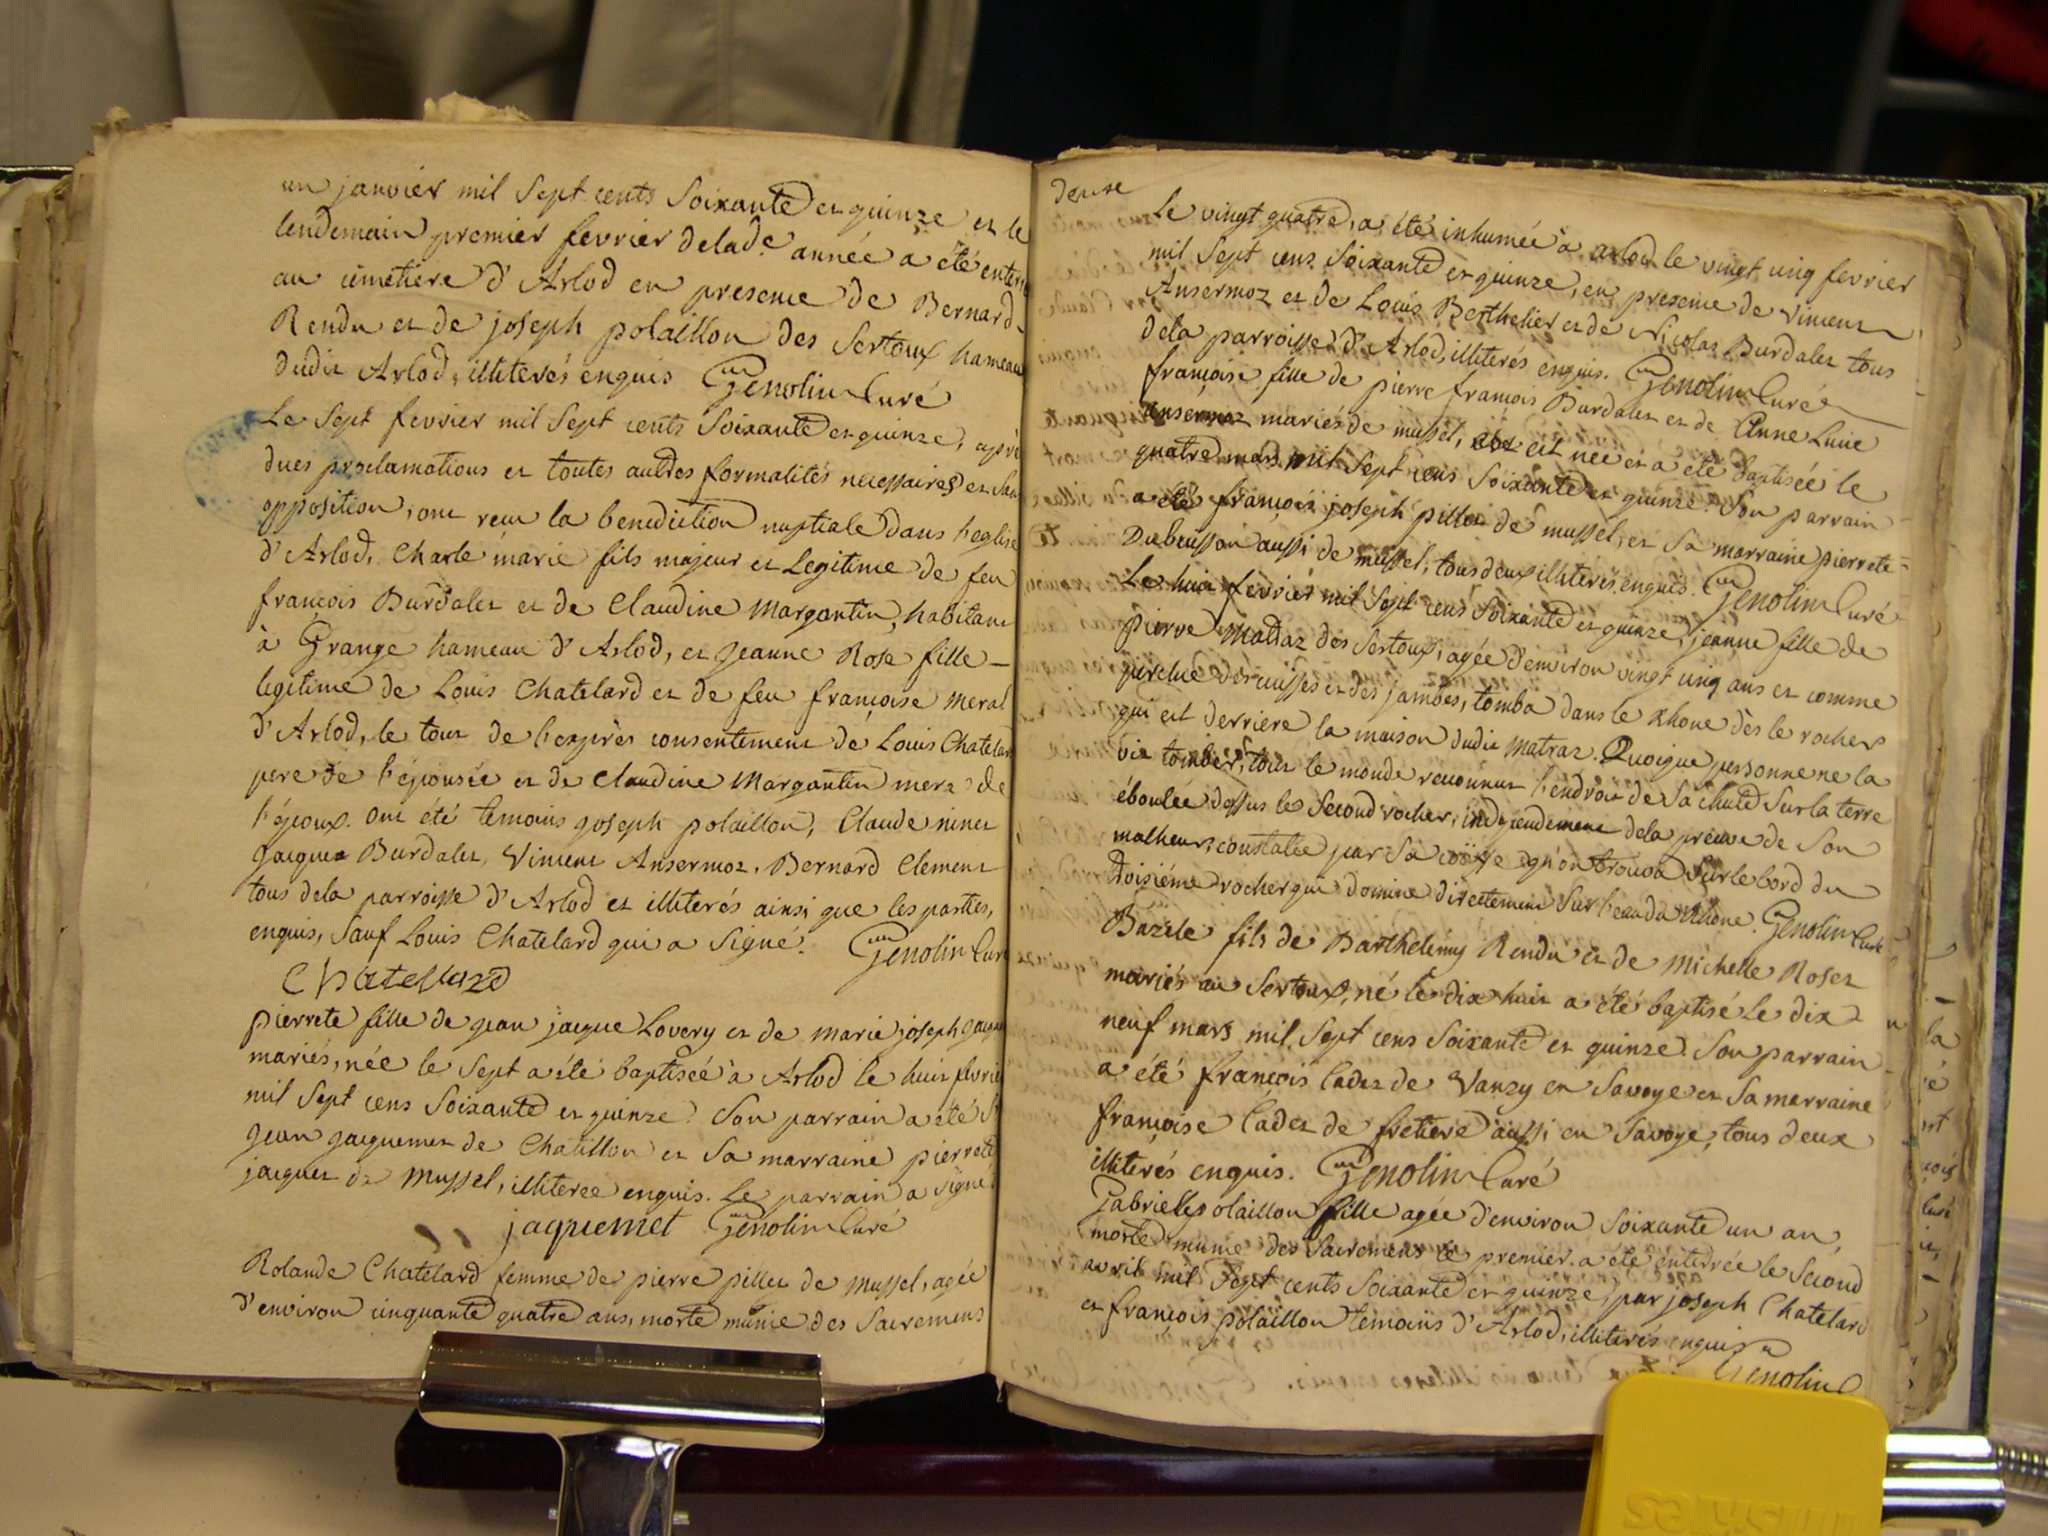 un janvier mil sept cents soixante et quinze et le
lendemain premier fevrier de lad.e année a été enterré
au cimetiere d'Arlod en presence de Bernard
Rendu et de joseph polaillon des Sertoux hameau
dudit Arlod, illiterés enquis Genolin Curé
Le Sept fevrier mil Sept cents Soixante et quinze, après
dues proclamations et toutes autres formalités necessaires et sans
opposition, ont recu la benediction nuptiale dans l'eglise
d'Arlod, Charle marie fils majeur et Legitime de feu
francois Burdalet et de Claudine Margantin, habitant
à Grange hameau d'Arlod, et jeanne Rose fille
legitime de Louis Chatelard et de feu françoise meral
d'Arlod, le tout de l'exprès consentement de Louis Chatelard
pere de l'épousée et de Claudine Margantin mere de
l'époux. ont été temoins joseph polaillon, Claude ninet
jacques Burdalet, Vincent Ansermoz, Bernard Clement
tous de la parroisse d'Arlod et illiterés ainsi que les parties,
enquis, Sauf Louis Chatelard qui a signé. Genolin Curé
Chatellard
pierrete fille de jean jacque Lovery et de marie joseph
mariés, née le Sept a été baptisée à Arlod le huit fevrier
mil Sept cens Soixante et quinze. Son parrain a été Sr
jean jacquemet de Chatillon et Sa marraine pierrete
jacquet de mussel, illiteree enquis. Le parrain a signé.
jaquemet Genolin Curé
Rolande Chatelard femme de pierre pillet de mussel, agée
d'environ cinquante quatre ans, morte munie des Sacremens
Le vingt quatre, a été inhumée à arlod le vingt cinq fevrier
mil Sept cens Soixante et quinze, en presence de Vincent
Ansermoz et de Louis Berthelier et de Nicolas Burdalet tous
de la parroisse d'Arlod, illiterés enquis. Genolin Curé
françoise fille de pierre francois Burdalet et de Anne Lucie
Ansermoz mariés de mussel, est née et a été baptisée le
quatre mars mil Sept cens Soixante et quinze. Son parrain
a été françois joseph pillet de mussel, et Sa marraine pierrete
Dubuisson aussi de mussel, tous deux illiterés, enquis. Genolin Curé
Le huit fevrier mil Sept cens Soixante et quinze, jeanne fille de
pierre Matraz des Sertoux, agée d'environ vingt cinq ans et comme
percluë des cuisses et des jambes, tomba dans le Rhone dès le rocher
qui est derriere la maison dudit Matraz. Quoique personne ne la
vit tomber, tout le monde reconnut l'endroit de Sa chute Sur la terre
éboulée dessus le Second rocher, independement de la preuve de Son
malheur, constatée par Sa coëffe qu'on trouva Sur le bord du
troisiéme rocher qui domine directement Sur l'eau du Rhone. Genolin Curé
Bazile fils de Barthelemy Rendu et de Michelle Roset
mariés au Sertoux, né le dix huit a été baptisé Le dix
neuf mars mil Sept cens Soixante et quinze. Son parrain
a été françois Cadet de Vanzy en Savoye et Sa marraine
françoise Cadet de fretiere aussi en Savoye, tous deux
illiterés enquis. Genolin Curé
Gabrielle polaillon fille agée d'environ Soixante un an,
morte munie des Sacremens le premier a été enterrée le Second
avril mil Sept cents Soixante et quinze, par joseph Chatelard
et françois polaillon temoins d'Arlod, illiterés enquis
Genolin C